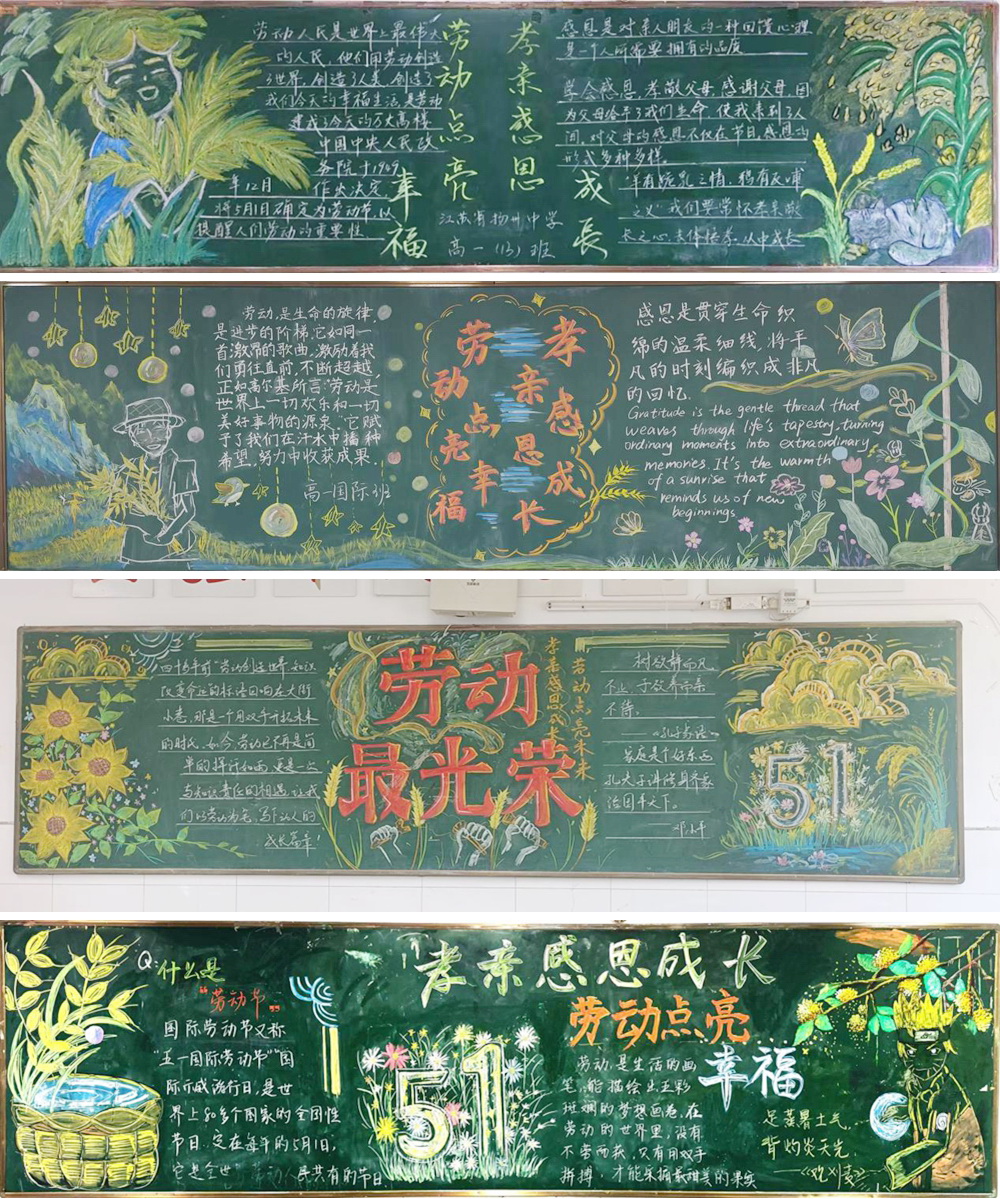 劳动人民是世界上最伟大
的人民，他们用劳动创造
了世界，创造了人类，创造了
我们今天的幸福生活，是劳动
建成了今天的万丈高楼
中国中央人民政
务院于1949
年12月 作出决定
将5月1日确定为劳动节，以
提醒人们劳动的重要性
劳动点亮
幸福
孝亲感恩
成长
江苏省扬州中学
高一(13)班
感恩是对亲人朋友的一种回馈心理
是一个人所需要拥有的品质
学会感恩，孝敬父母，感谢父母，因
为父母给予了我们生命，使我来到了人
间。对父母的感恩不仅在节日，感恩的
形式多种多样。
羊有跪乳之情，鸦有反哺
之义，我们要常怀孝亲敬
长之心，去体悟孝，从中成长
劳动，是生命的旋律，
是进步的阶梯，它如同一
首激昂的歌曲，激励着我
们勇往直前，不断超越，
正如高尔基所言：“劳动是
世界上一切欢乐和一切
美好事物的源泉。”它赋
予了我们在汗水中播种
希望，努力中收获成果。
高一国际班
劳动点亮幸福
孝亲感恩成长
感恩是贯穿生命织
绵的温柔细线，将平
凡的时刻编织成非凡
的回忆.
Gratitude is the gentle thread that
weaves through life's tapestry, turning
ordinary moments into extraordinary
memories. It's the warmth
of a sunrise that
reminds us of new
beginnings.
四十多年前“劳动创造世界，知识
改变命运的标语回响在大街
小巷，那是一个用双手开拓未来
的时代。如今，劳动已不再是简
单的挥汗如雨，更是一次
与知识责任的相遇，让我
们以劳动为笔，写下动人的
成长篇章！
劳动
最光荣
孝亲感恩成长
劳动点亮未来
树欲静而风
不止，子欲养而亲
不待。
——《孔子家语》
家庭是个好东西
孔夫子讲修身齐家
治国平天下。
——邓小平
51
Q:什么是
“劳动节”
国际劳动节又称
“五一国际劳动节”“国
际示威游行日，是世
界上80多个国家的全国性
节日.定在每年的5月1日，
它是全世 劳动人民共有的节日
孝亲感恩成长
51
劳动点亮
幸福
劳动，是生活的画
笔，能描绘出五彩
斑斓的梦想画卷.在
劳动的世界里，没有
不劳而获，只有用双手
拼搏，才能采摘最甜美的果实
足蒸暑土气，
背灼炎天光.
——《观刈麦》